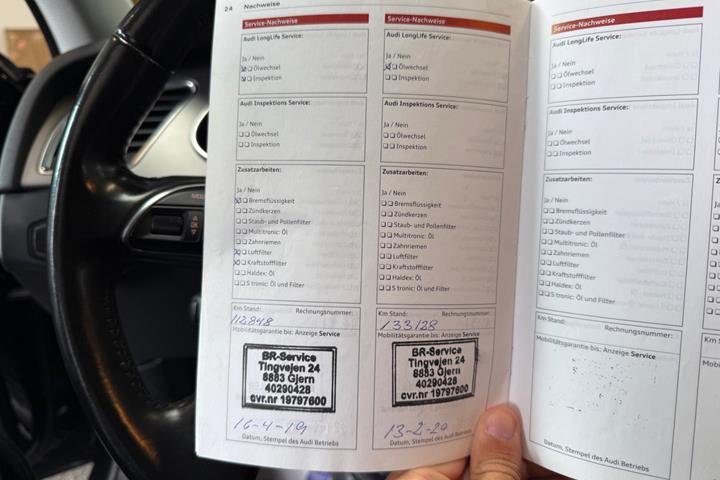 24 Nachweise
Service-Nachweise
Audi LongLife Service:
Ja / Nein
Ölwechsel
Inspektion
Audi Inspektions Service:
Ja / Nein
Ölwechsel
Inspektion
Zusatzarbeiten:
Ja / Nein
Bremsflüssigkeit
Zündkerzen
Staub- und Pollenfilter
Multitronic: Öl
Zahnriemen
Luftfilter
Kraftstofffilter
Haldex: Öl
S tronic: Öl und Filter
Km Stand: Rechnungsnummer:
112848
Mobilitätsgarantie bis: Anzeige Service
BR-Service
Tingvejen 24
8883 Gjern
40290428
cvr.nr 19797600
16-4-19
Datum, Stempel des Audi Betriebs
Service-Nachweise
Audi LongLife Service:
Ja / Nein
Ölwechsel
Inspektion
Audi Inspektions Service:
Ja / Nein
Ölwechsel
Inspektion
Zusatzarbeiten:
Ja / Nein
Bremsflüssigkeit
Zündkerzen
Staub- und Pollenfilter
Multitronic: Öl
Zahnriemen
Luftfilter
Kraftstofffilter
Haldex: Öl
S tronic: Öl und Filter
Km Stand: Rechnungsnummer:
133128
Mobilitätsgarantie bis: Anzeige Service
BR-Service
Tingvejen 24
8883 Gjern
40290428
cvr.nr 19797600
13-2-20
Datum, Stempel des Audi Betriebs
Service-Nachweise
Audi LongLife Service:
Ja / Nein
Ölwechsel
Inspektion
Audi Inspektions Service:
Ja / Nein
Ölwechsel
Inspektion
Zusatzarbeiten:
Ja / Nein
Bremsflüssigkeit
Zündkerzen
Staub- und Pollenfilter
Multitronic: Öl
Zahnriemen
Luftfilter
Kraftstofffilter
Haldex: Öl
S tronic: Öl und Filter
Km Stand: Rechnungsnummer:
Mobilitätsgarantie bis: Anzeige Service
Datum, Stempel des Audi Betriebs